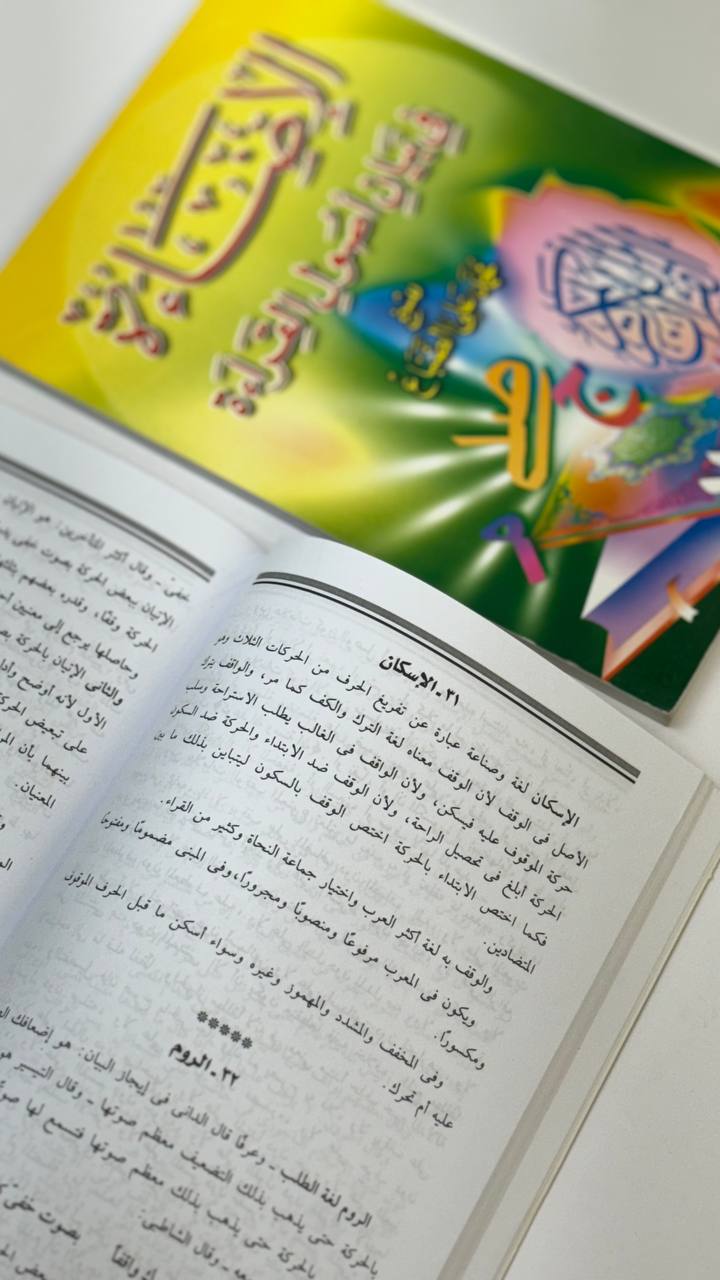 الإضاءة
في بيان أصول القراءة
القرآن الكريم
٣١ ـ الإسكان
الإسكان لغة وصناعة عبارة عن تفريغ الحرف من الحركات الثلاث وهو
الأصل فى الوقف لأن الوقف معناه لغة الترك والكف كما مر، والواقف يترك
حركة الموقوف عليه فيسكن، ولأن الواقف فى الغالب يطلب الاستراحة وسلب
الحركة أبلغ فى تحصيل الراحة، ولأن الوقف ضد الابتداء والحركة ضد السكون
فكما اختص الابتداء بالحركة اختص الوقف بالسكون ليتباين بذلك ما بين
المتضادين.
والوقف به لغة أكثر العرب واختيار جماعة النحاة وكثير من القراء.
ويكون فى المعرب مرفوعًا ومنصوبًا ومجرورًا، وفى المبنى مضمومًا ومفتوحًا
ومكسورًا.
وفى المخفف والمشدد والمهموز وغيره وسواء أسكن ما قبل الحرف الموقوف
عليه أم تحرك.
*****
٣٢ ـ الروم
الروم لغة الطلب ـ وعرفًا قال الدانى فى إيجاز البيان: هو إضعافك
بالحركة حتى يذهب بذلك التضعيف معظم صوتها ـ وقال التيسير هو
بالحركة حتى يذهب بذلك معظم صوتها فتسمع لها
ـ وقال الشاطبى:
بصوت خفى
واقفا
ـ وقال أكثر المتأخرين: هو الإتيان
الإتيان ببعض الحركة بصوت خفى
الحركة وقفًا، وقدره بعضهم
وحاصلها يرجع إلى معنيين
والثانى الإتيان بالحركة
الأول لأنه أوضح
على تبعيض الحركة
بينهما بأن
المعنيان.